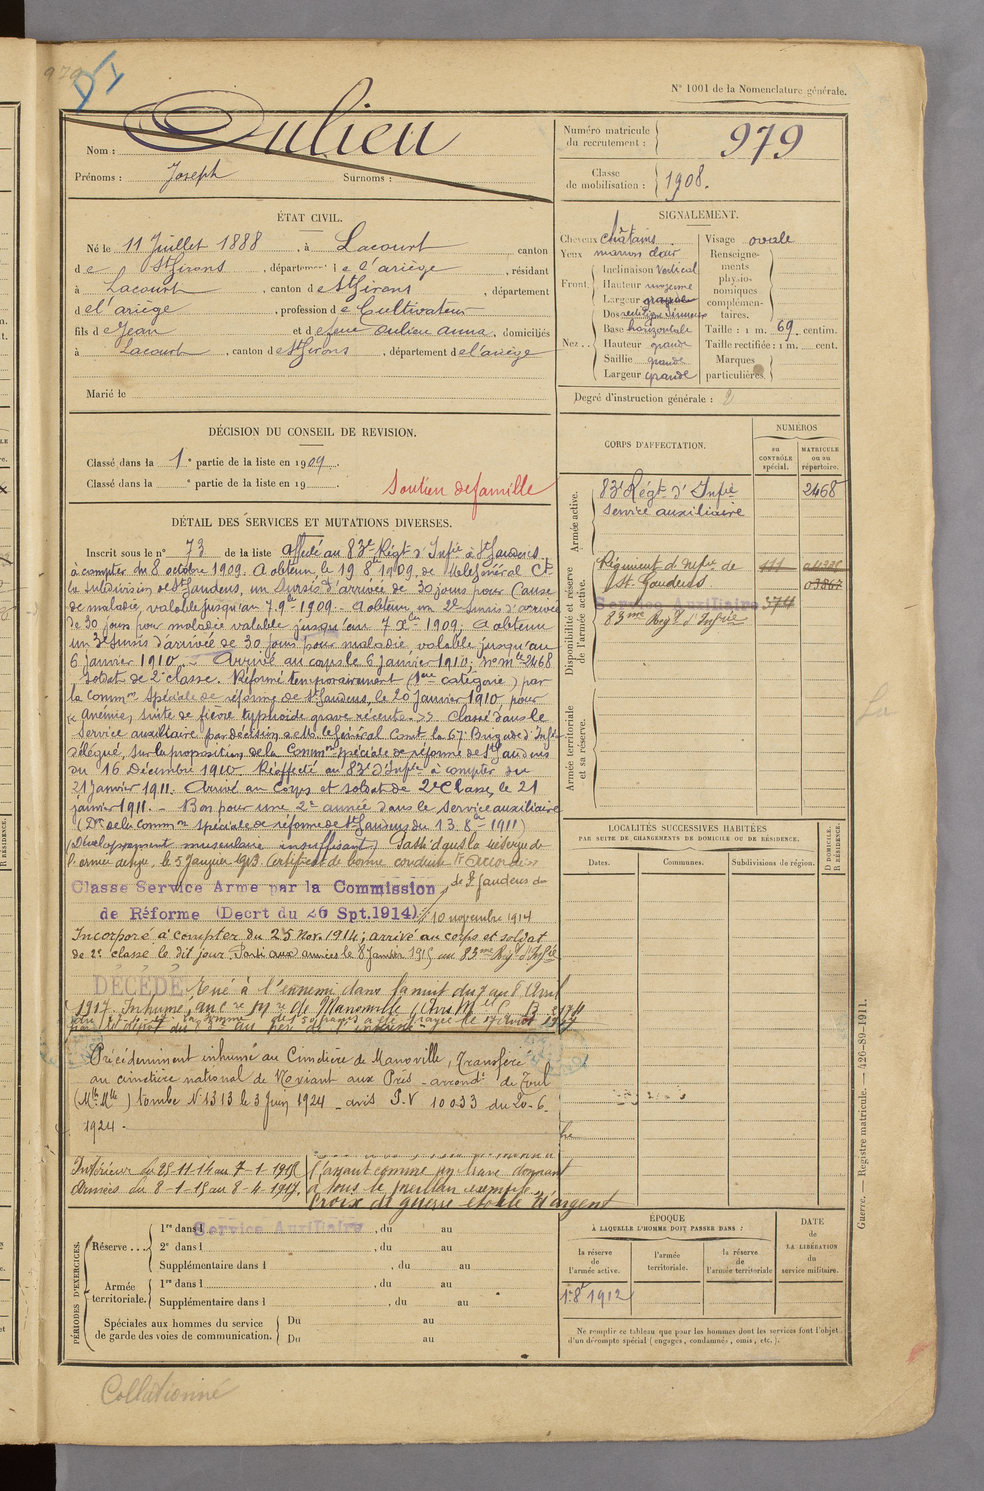 979
N° 1001 de la Nomenclature générale.
Nom : Aulieu
Prénoms : Joseph Surnoms :
Numéro matricule du recrutement : 979
Classe de mobilisation : 1908.
ÉTAT CIVIL.
Né le 11 Juillet 1888, à Lacourt canton
de St Girons, département de l'ariège, résidant
à Lacourt, canton de St Girons, département
de l'ariège, profession de Cultivateur
fils de Jean et de feue aulieu anna, domiciliés
à Lacourt, canton de St Girons, département de l'ariège
Marié le
SIGNALEMENT.
Cheveux châtains
Yeux marron clair
Front. Inclinaison Vertical
Hauteur moyenne
Largeur grande
Nez.. Dos rectiligne sinueux
Base horizontale
Hauteur grande
Saillie grande
Largeur grande
Visage ovale
Renseignements physionomiques complémentaires.
Taille : 1 m. 69 centim.
Taille rectifiée : 1 m. cent.
Marques particulières.
Degré d'instruction générale : 2
DÉCISION DU CONSEIL DE REVISION.
Classé dans la 1e partie de la liste en 1909.
Classé dans la e partie de la liste en 19
Soutien de famille
DÉTAIL DES SERVICES ET MUTATIONS DIVERSES.
Inscrit sous le n° 73 de la liste Affecté au 83e Régt d'Infie à St Gaudens
à compter du 8 octobre 1909. A obtenu le 19 8bre 1909, de M le Général Ct
la subdivision de St Gaudens, un sursis d'arrivée de 30 jours pour Cause
de maladie, valable jusqu'au 7 9bre 1909. A obtenu un 2e sursis d'arrivée
de 30 jours pour maladie valable jusqu'au 7 Xbre 1909; A obtenu
un 3e sursis d'arrivée de 30 jours pour maladie valable jusqu'au
6 janvier 1910. Arrivé au corps le 6 janvier 1910; n° mle 2468
Soldat de 2e classe. Réformé temporairement (1ere catégorie) par
la Common spéciale de réforme de St Gaudens, le 20 janvier 1910, pour
« anémie, suite de fièvre typhoïde grave récente » Classé dans le
service auxiliaire par décision de M. le Général Comt la 67e Brigade d'Infie
délégué, sur la proposition de la Common spéciale de réforme de St Gaudens
du 16 Décembre 1910. Réaffecté au 83e d'Infie à compter du
21 janvier 1911. Arrivé au Corps et soldat de 2e Classe, le 21
janvier 1911. - Bon pour une 2e année dans le service auxiliaire
(Don de la Common spéciale de réforme de St Gaudens du 13 8bre 1911)
(Développement musculaire insuffisant) Passé dans la réserve de
l'armée active, le 5 Janvier 1913 Certificat de bonne conduite
Classé Service Armé par la Commission de St Gaudens du
de Réforme (Decrt du 26 Spt.1914) 10 novembre 1914
Incorporé à compter du 25 Nov. 1914; arrivé au corps et soldat
de 2e classe le dit jour. Parti aux armées le 8 Janvier 1915 au 83me Régt d'Infie
DÉCÉDÉ Tué à l'ennemi dans la nuit du 7 au 8 Avril
1917. Inhumé au de Manonville
Précédemment inhumé au Cimetière de Manoville, Transféré
au cimetière national de Noviant aux Prés - arrondt de Toul
(Mthe Mlle) tombe N 1313 le 3 Juin 1924 - avis P.V 10033 du 20-6-
1924 -
Intérieur du 25-11-14 au 7-1-1915
Armées du 8-1-15 au 8-4-1917.
donnant
à tous le meilleur exemple
Croix de guerre étoile d'argent
CORPS D'AFFECTATION.
NUMÉROS
au CONTRÔLE spécial.
MATRICULE ou au répertoire.
Armée active.
83e Régt d'Infie 2468
Service auxiliaire
Disponibilité et réserve de l'armée active.
Régiment d'Infie de 111
St. Gaudens 03867
Service Auxiliaire 374
83me Régt d'Infie
Armée territoriale et sa réserve.
LOCALITÉS SUCCESSIVES HABITÉES
PAR SUITE DE CHANGEMENTS DE DOMICILE OU DE RÉSIDENCE.
Dates. Communes. Subdivisions de région.
D DOMICILE. R RÉSIDENCE.
PÉRIODES D'EXERCICES.
Réserve ... 1re dans l Service Auxiliaire, du au
2e dans l , du au
Supplémentaire dans l , du au
Armée territoriale. 1re dans l , du au
Supplémentaire dans l , du au
Spéciales aux hommes du service de garde des voies de communication. Du au
Du au
ÉPOQUE
À LAQUELLE L'HOMME DOIT PASSER DANS :
la réserve de l'armée active.
l'armée territoriale.
la réserve de l'armée territoriale
DATE de LA LIBÉRATION du service militaire.
1r 8bre 1912
Ne remplir ce tableau que pour les hommes dont les services font l'objet
d'un décompte spécial (engagés, condamnés, omis, etc.).
Guerre. — Registre matricule. — 426-89-1911.
Collationné